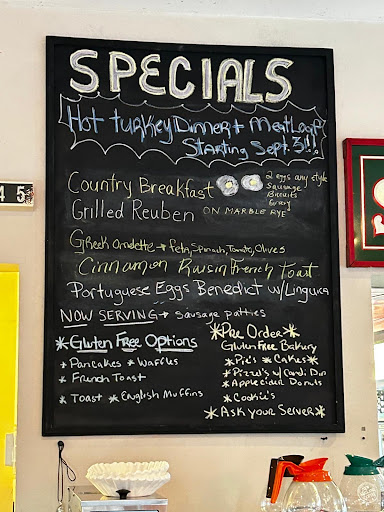 SPECIALS
Hot Turkey Dinner + Meatloaf
Starting Sept. 3!!
Country Breakfast
2 eggs any style
Sausage
Biscuits
Gravy
Grilled Reuben ON MARBLE RYE
Greek Omelette → Feta, Spinach, Tomato, Olives
Cinnamon Raisin French Toast
Portuguese Eggs Benedict w/ Linguica
NOW SERVING → Sausage patties
*Gluten Free Options
+ Pancakes * Waffles
* French Toast
* Toast * English Muffins
*Pre Order*
Gluten Free Bakery
* Pie's * Cakes*
* Pizza's w/
* Applecider Donuts
* Cookie's
*Ask your Server*
45
S